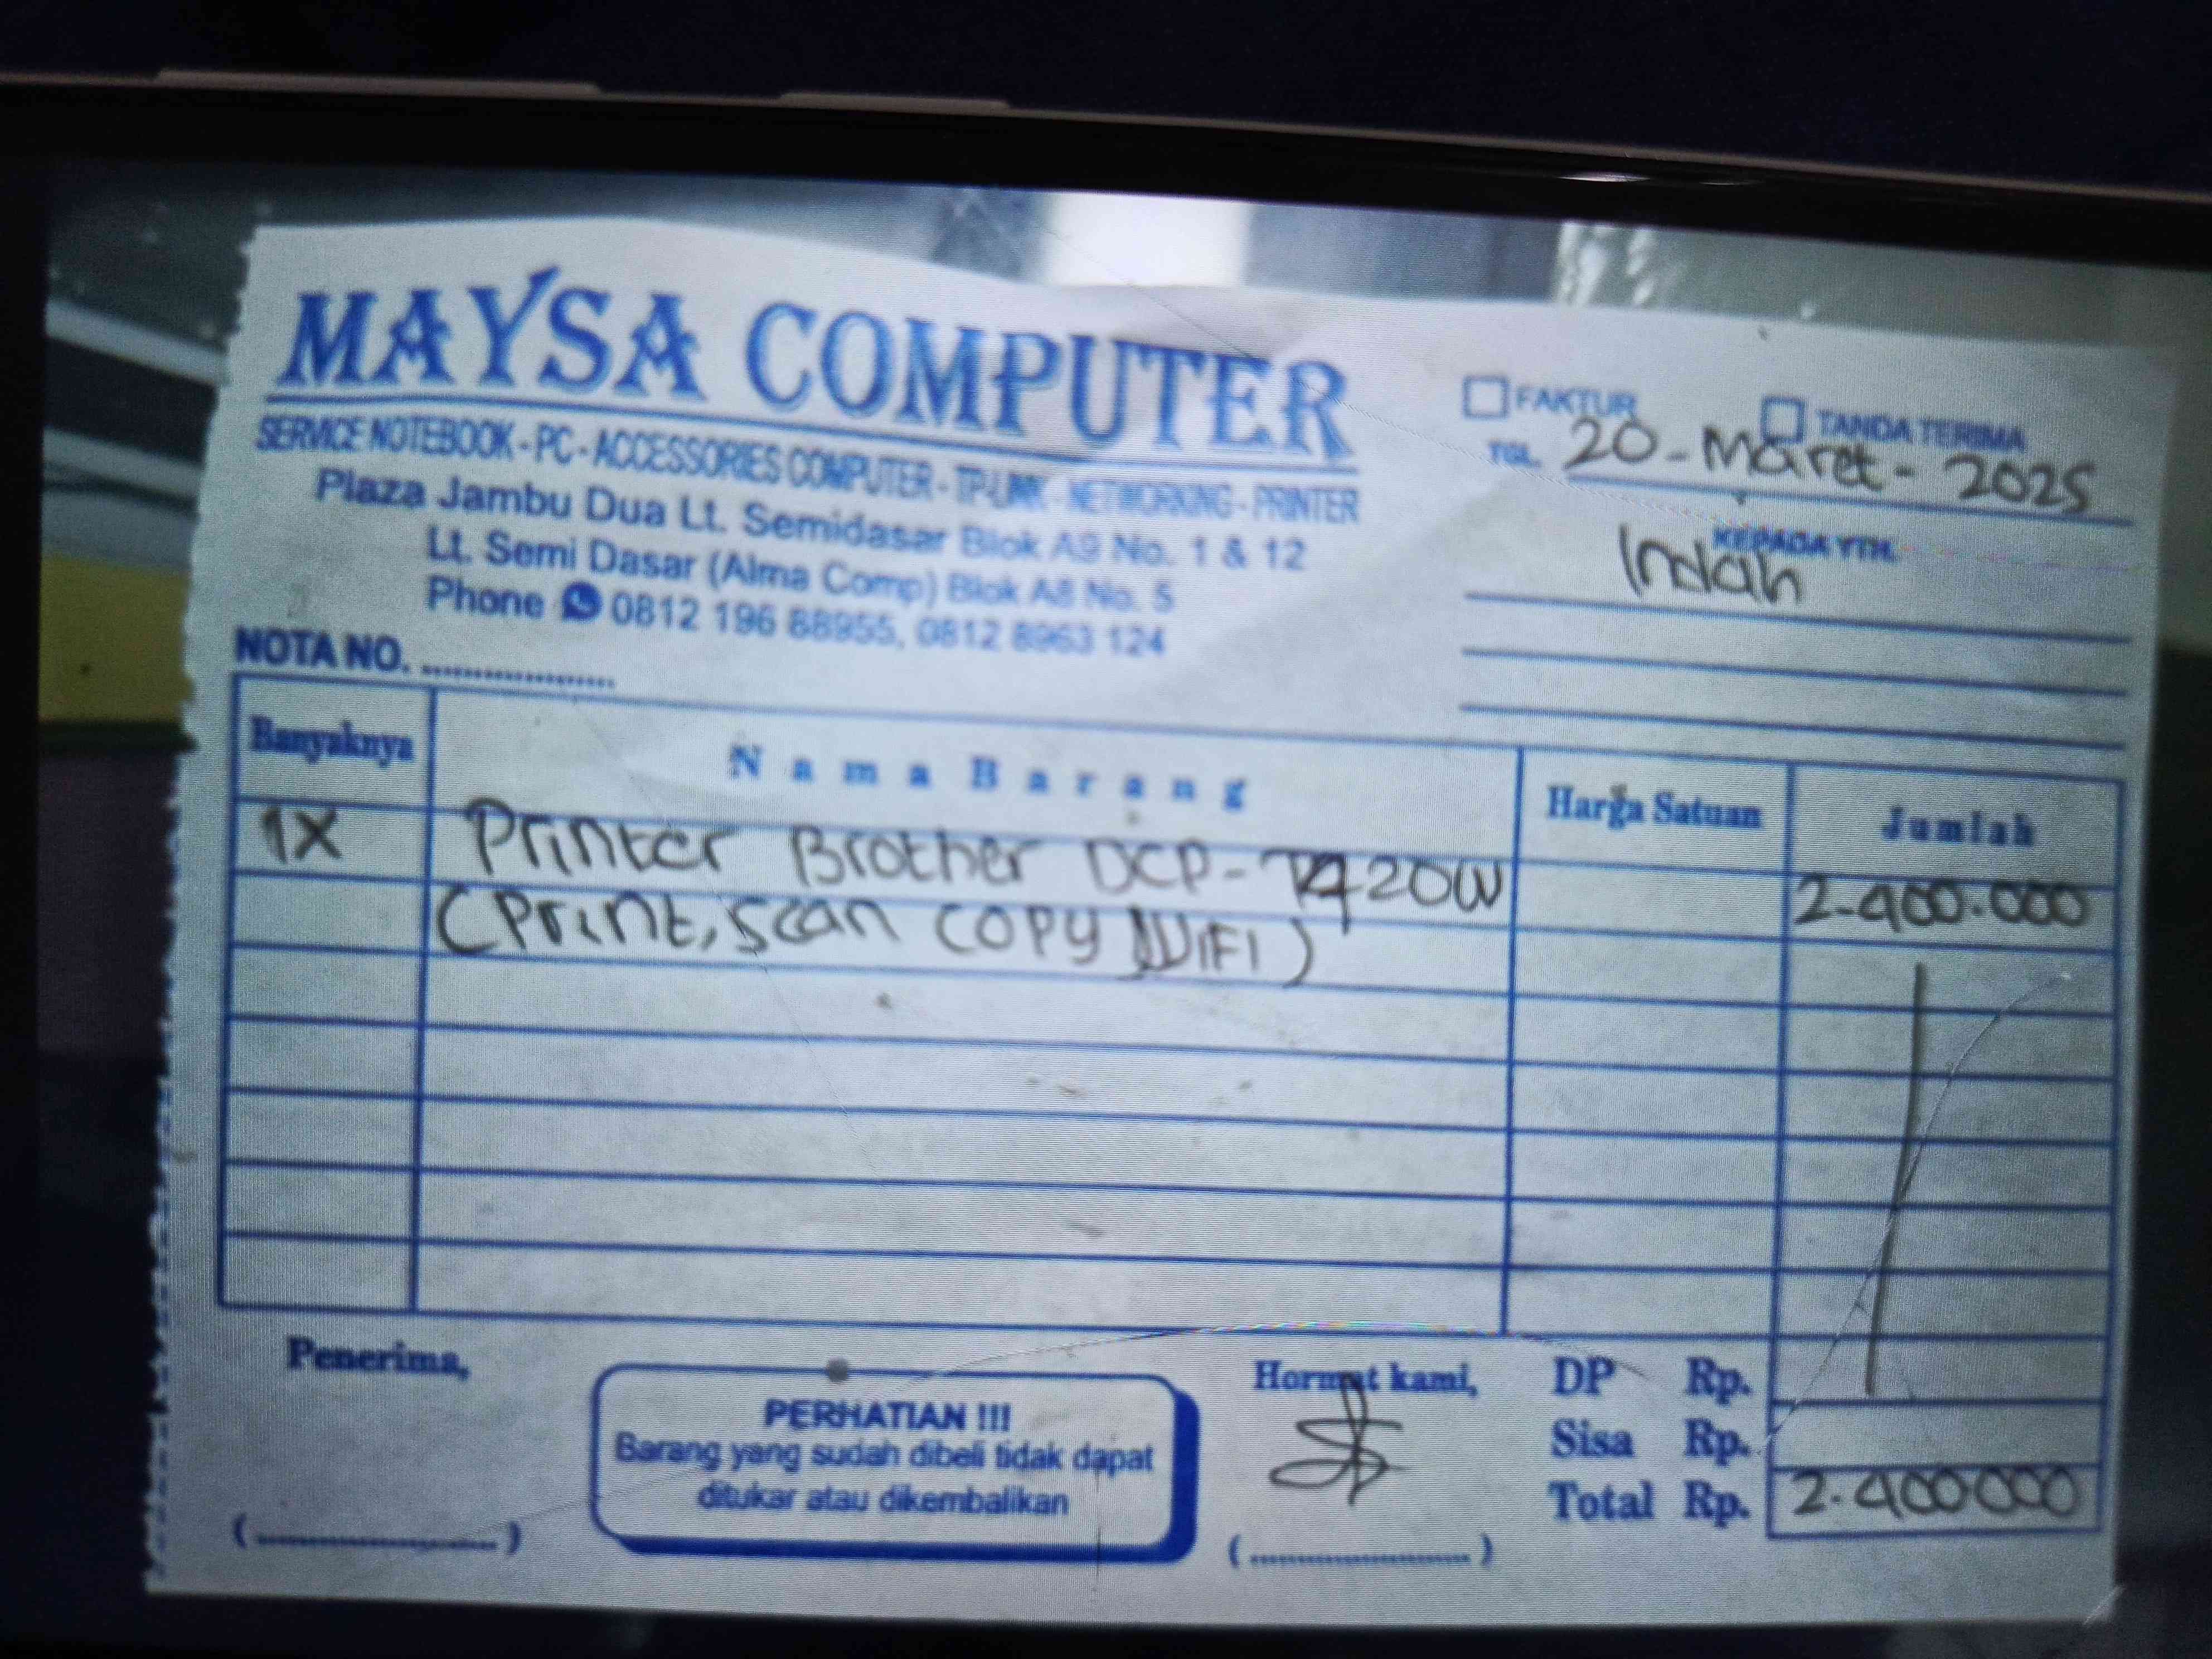 MAYSA COMPUTER
SERVICE NOTEBOOK - PC - ACCESSORIES COMPUTER - TP-LINK - NETWORKING - PRINTER
Plaza Jambu Dua Lt. Semidasar Blok A9 No. 1 & 12
Lt. Semi Dasar (Alma Comp) Blok A8 No. 5
Phone 0812 196 88955, 0812 8963 124
FAKTUR TANDA TERIMA
TGL. 20 - Maret - 2025
KEPADA YTH.
Indah
NOTA NO. ....................
Banyaknya Nama Barang Harga Satuan Jumlah
1X Printer Brother DCP-T420W 2.400.000
(Print, scan copy WIFI)
Penerima,
(........................)
PERHATIAN !!!
Barang yang sudah dibeli tidak dapat
ditukar atau dikembalikan
Hormat kami,
(........................)
DP Rp.
Sisa Rp.
Total Rp. 2.400000